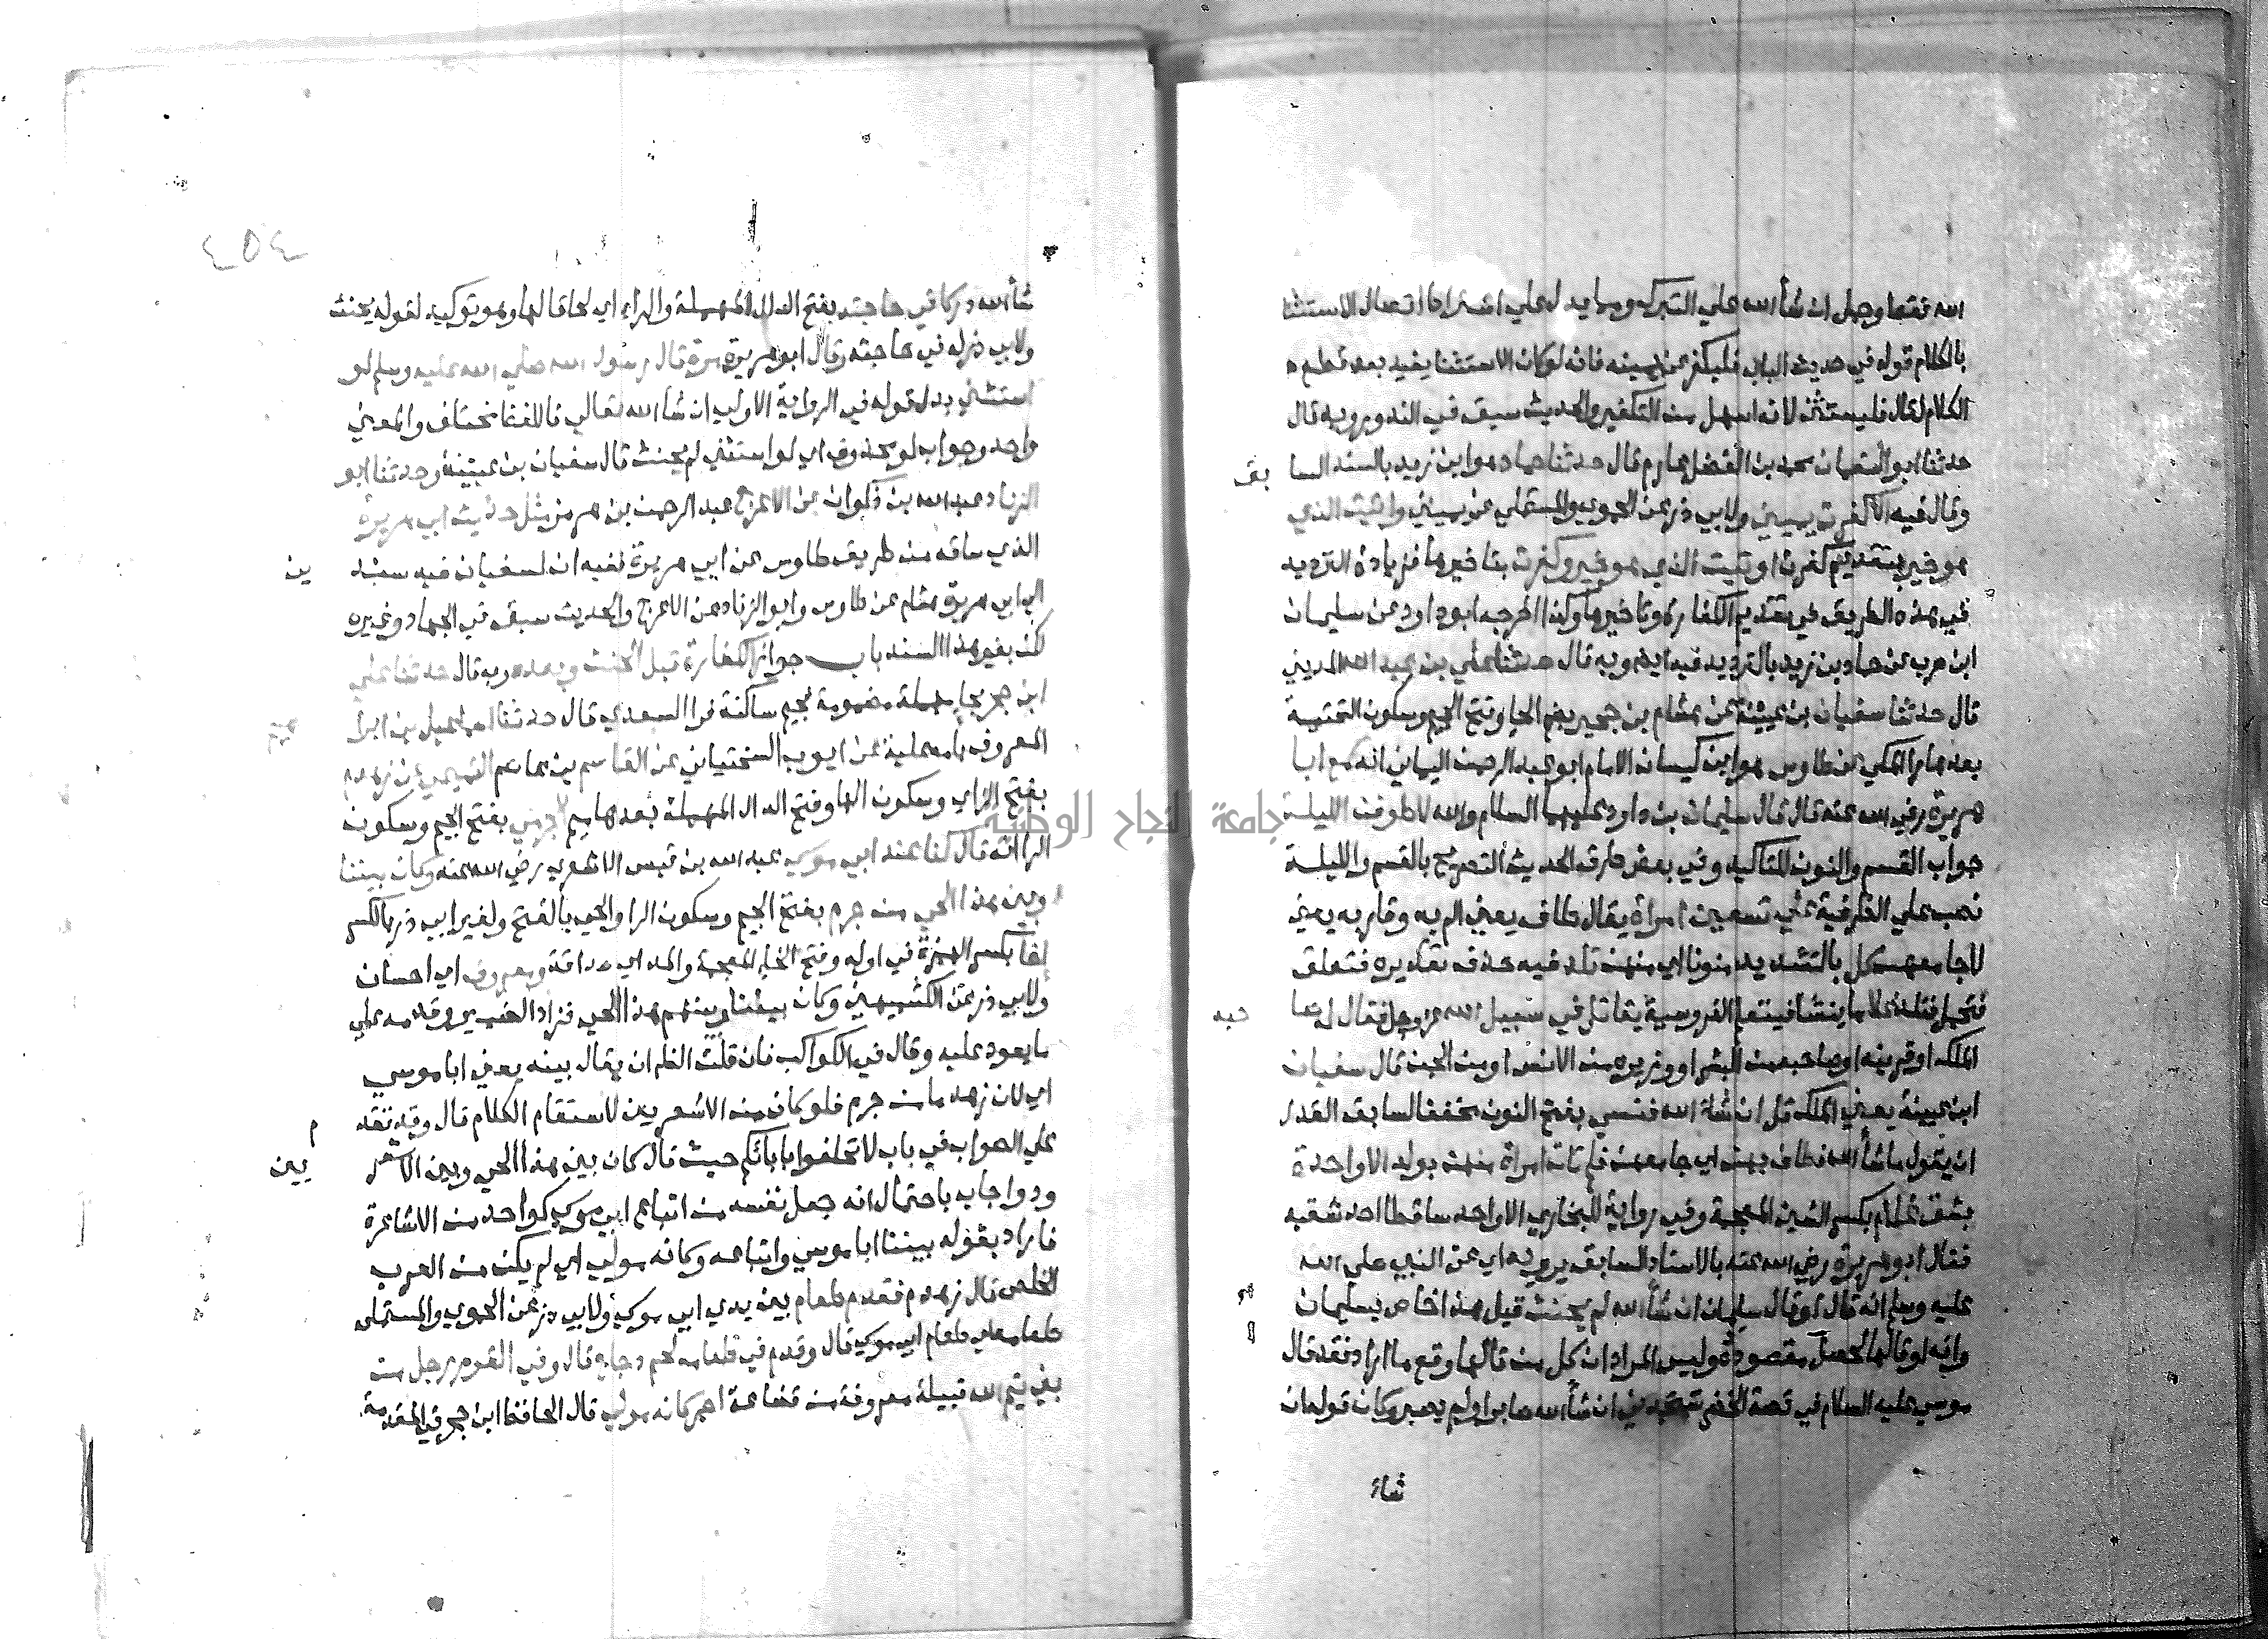 الله فقدما وجل ان شأ الله علي التبرك ومما يدل علي اشتراط اتصال الاستثنا
بالكلام قوله في حديث الباب فليكفر عن يمينه فانه لو كان الاستثنا يفيد بعد قطع
الكلام لقال فليستثن لانه اسهل من التكفير والحديث سبق في النذور وبه قال
حدثنا ابو النعمان محمد بن الفضل عارم قال حدثنا حماد هو ابن زيد بالسند السابق
وقال فيه الا كفرت يميني ولابي ذر عن الحموي والمستملي عن يميني واتيت الذي
هو خير بتقديم كفرت او اتيت الذي هو خير وكفرت بتاخيرها فزيادة الترديد
في هذه الطريق في تقديم الكفارة وتاخيرها وكذا اخرجه ابو داود عن سليمان
ابن حرب عن حماد بن زيد بالترديد فيه ايضا وبه قال حدثنا علي بن عبد الله المديني
قال حدثنا سفيان بن عيينة عن هشام بن حجير بضم الحا وفتح الجيم وسكون التحتية
بعدها را المكي عن طاوس هو ابن كيسان الامام ابو عبد الرحمن اليماني انه سمع ابا
هريرة رضي الله عنه قال قال سليمان بن داود عليهما السلام والله لاطوفن الليلة
جواب القسم والنون للتاكيد وفي بعض طرق الحديث التصريح بالقسم والليلة
نصب علي الظرفية علي تسعين امراة يقال طاف به يعني الم به وقاربه يعني
لاجامعهن كل بالتشديد منونا اي منهن تلد فيه حذف تقديره فتعلق
فتحبل فتلد غلاما ينشا فيتعلم الفروسية يقاتل في سبيل الله عز وجل فقال له صاحبه
الملك او قرينه او صاحبه من البشر او وزيره من الانس او من الجن قال سفيان
ابن عيينة يعني الملك قل ان شاء الله فنسي بفتح النون مخففا لسابق القدر
ان يقول ما شأ الله فطاف بهن اي جامعهن فلم تات امراة منهن بولد الا واحدة
بشق غلام بكسر الشين المعجمة وفي رواية للبخاري الا واحدا ساقطا احد شقيه
فقال ابو هريرة رضي الله عنه بالاسناد السابق يرويه اي عن النبي صلي الله
عليه وسلم انه قال لو قال سليمان ان شأ الله لم يحنث قيل هذا خاص بسليمان
وانه لو قالها لحصل مقصوده وليس المراد ان كل من قالها وقع ما اراد فقد قال
موسي عليه السلام في قصة الخضر ستجدني ان شأ الله صابرا ولم يصبر وكان قوله ان
شاء
٤٥٤
شأ الله دركا في حاجته بفتح الدال المهملة والراء اي لحاقا لها وهو توكيد لقوله يحنث
ولابي ذر له في حاجته وقال ابو هريرة مرة قال رسول الله صلي الله عليه وسلم لو
استثني بدل قوله في الرواية الاولي ان شأ الله تعالي فاللفظ مختلف والمعني
واحد وجواب لو محذوف اي لو استثني لم يحنث قال سفيان بن عيينة وحدثنا ابو
الزناد عبد الله بن ذكوان عن الاعرج عبد الرحمن بن هرمز مثل حديث ابي هريرة
الذي ساقه من طريق طاوس عن ابي هريرة ففيه ان لسفيان فيه سندين
الي ابي هريرة هشام عن طاوس وابو الزناد عن الاعرج والحديث سبق في الجهاد وغيره
لكن بغير هذا السند باب جواز الكفارة قبل الحنث وبعده وبه قال حدثنا علي
ابن حجر بحا مهملة مضمومة فجيم ساكنة فرا السعدي قال حدثنا اسماعيل بن ابراهيم
المعروف بامه علية عن ايوب السختياني عن القاسم بن عاصم التميمي عن زهدم
بفتح الزاي وسكون الها وفتح الدال المهملة بعدها ميم الجرمي بفتح الجيم وسكون
الرا انه قال كنا عند ابي موسي عبد الله بن قيس الاشعري رضي الله عنه وكان بيننا
وبين هذا الحي من جرم بفتح الجيم وسكون الرا والحي بالفتح ولغير ابي ذر بالكسر
اخا بكسر الهمزة في اوله وفتح الخاء المعجمة والمد اي صداقة ومعروف اي احسان
ولابي ذر عن الكشميهني وكان بيننا وبينهم هذا الحي فزاد الضمير وقدمه علي
ما يعود عليه وقال في الكواكب فان قلت الظاهر ان يقال بينه يعني ابا موسي
اي لان زهدما من جرم فلو كان من الاشعريين لاستقام الكلام قال وقد تقدم
علي الصواب في باب لا تحلفوا بابائكم حيث قال كان بين هذا الحي وبين الاشعريين
ود واجاب باحتمال انه جعل نفسه من اتباع ابي موسي كواحد من الاشاعرة
فاراد بقوله بيننا ابا موسي واتباعه وكانه مولي اي لم يكن من العرب
الخلص قال زهدم فقدم طعام بين يدي ابي موسي ولابي ذر عن الحموي والمستملي
طعامه اي طعام ابي موسي قال وقدم في طعامه لحم دجاج قال وفي القوم رجل من
بني تيم الله قبيلة معروفة من قضاعة احمر كانه مولي قال الحافظ ابن حجر في المقدمة
جامعة النجاح الوطنية